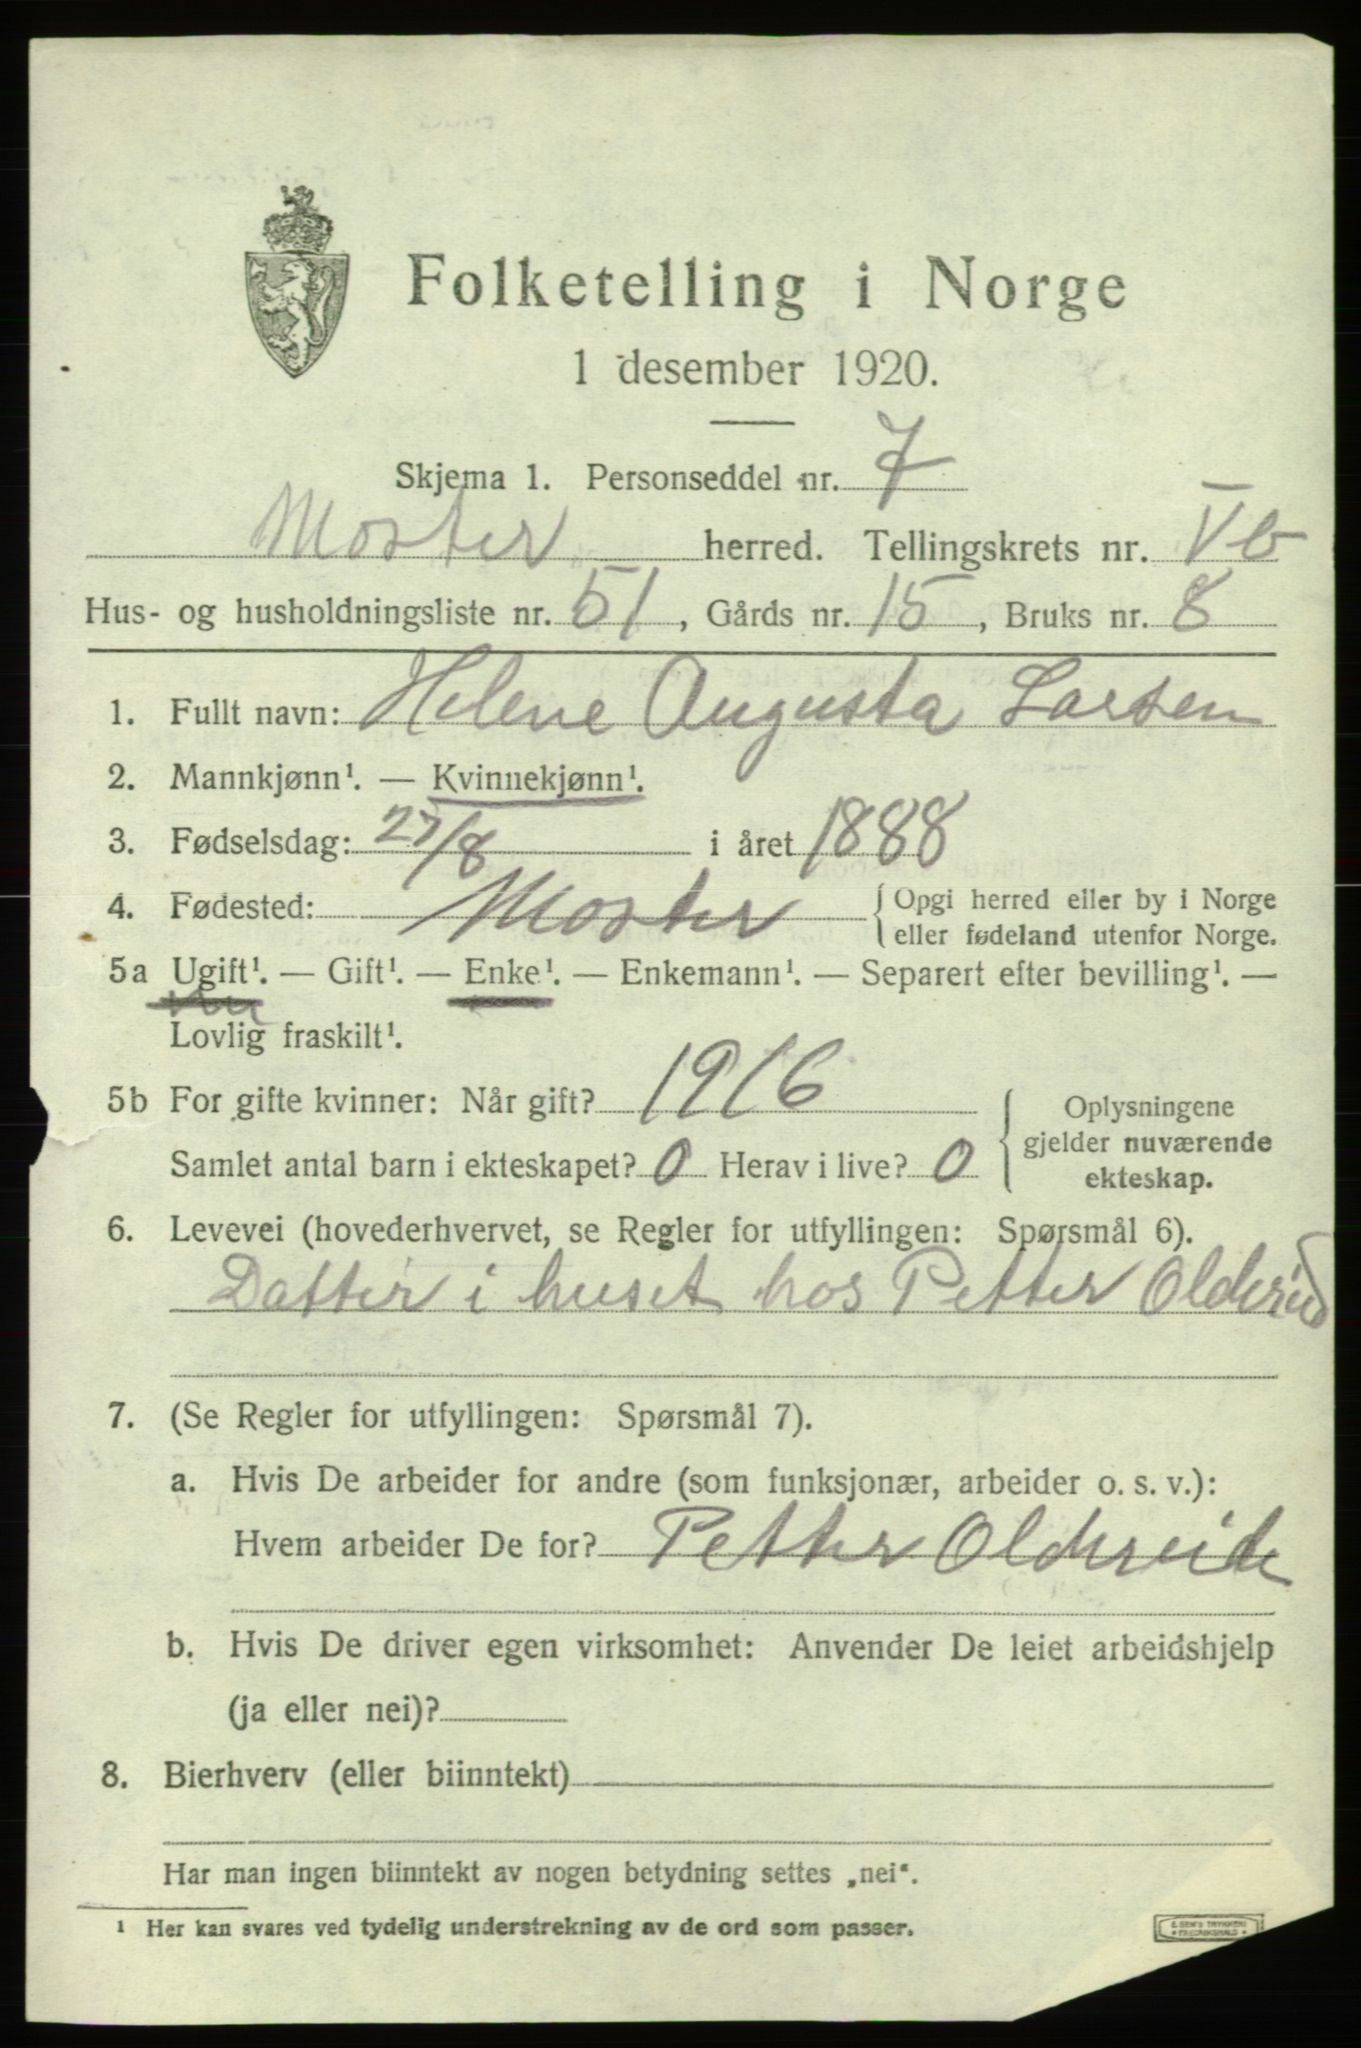 Folketelling i Norge
1 desember 1920.
Skjema 1. Personseddel nr. 7
Moster herred. Tellingskrets nr. Vb
Hus- og husholdningsliste nr. 51, Gårds nr. 15, Bruks nr. 8
1. Fullt navn: Helene Augusta Larsen
2. Mannkjønn¹. — Kvinnekjønn¹.
3. Fødselsdag: 27/8 i året 1888
4. Fødested: Moster { Opgi herred eller by i Norge
eller fødeland utenfor Norge.
5a Ugift¹. — Gift¹. — Enke¹. — Enkemann¹. — Separert efter bevilling¹. —
Lovlig fraskilt¹.
5b For gifte kvinner: Når gift? 1916
Samlet antal barn i ekteskapet? 0 Herav i live? 0
Oplysningene
gjelder nuværende
ekteskap.
6. Levevei (hovederhvervet, se Regler for utfyllingen: Spørsmål 6).
Datter i huset hos Petter Oldereid
7. (Se Regler for utfyllingen: Spørsmål 7).
a. Hvis De arbeider for andre (som funksjonær, arbeider o. s. v.):
Hvem arbeider De for? Petter Oldereide
b. Hvis De driver egen virksomhet: Anvender De leiet arbeidshjelp
(ja eller nei)?
8. Bierhverv (eller biinntekt)
Har man ingen biinntekt av nogen betydning settes „nei“.
¹ Her kan svares ved tydelig understrekning av de ord som passer.